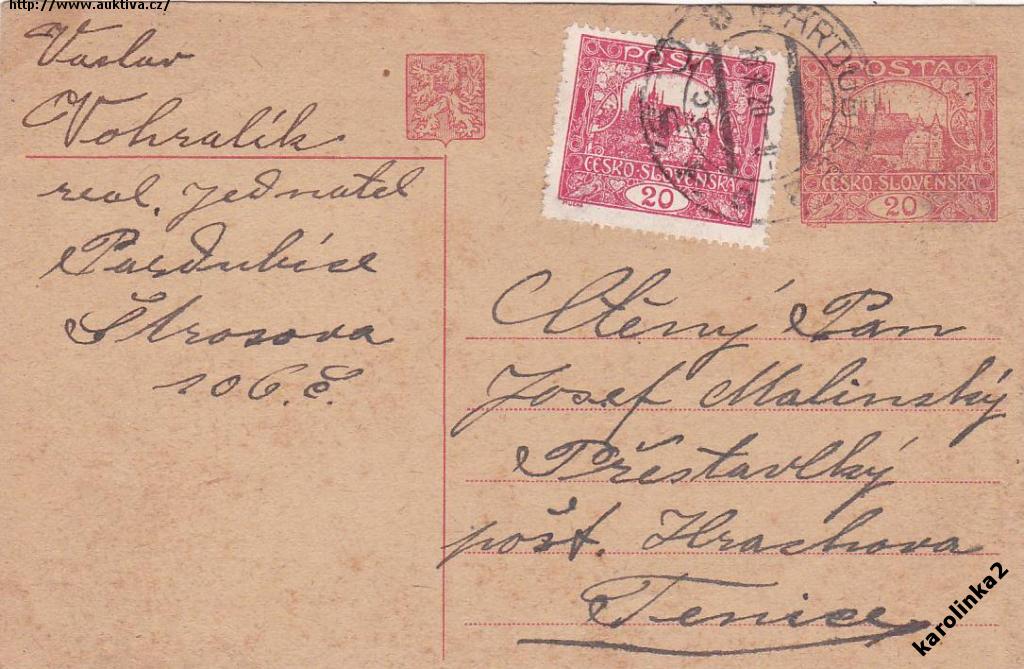 http://www.auktiva.cz/
Vaslav
Vohralík
real. jednatel
Pardubice
Štrosova
106.č.
POŠTA
ČESKO-SLOVENSKÁ
20
POŠTA
ČESKO-SLOVENSKÁ
20
Ctěný Pan
Josef Malinský
Přestavlký
pošt. Hrachova
Tenice
karolinka2